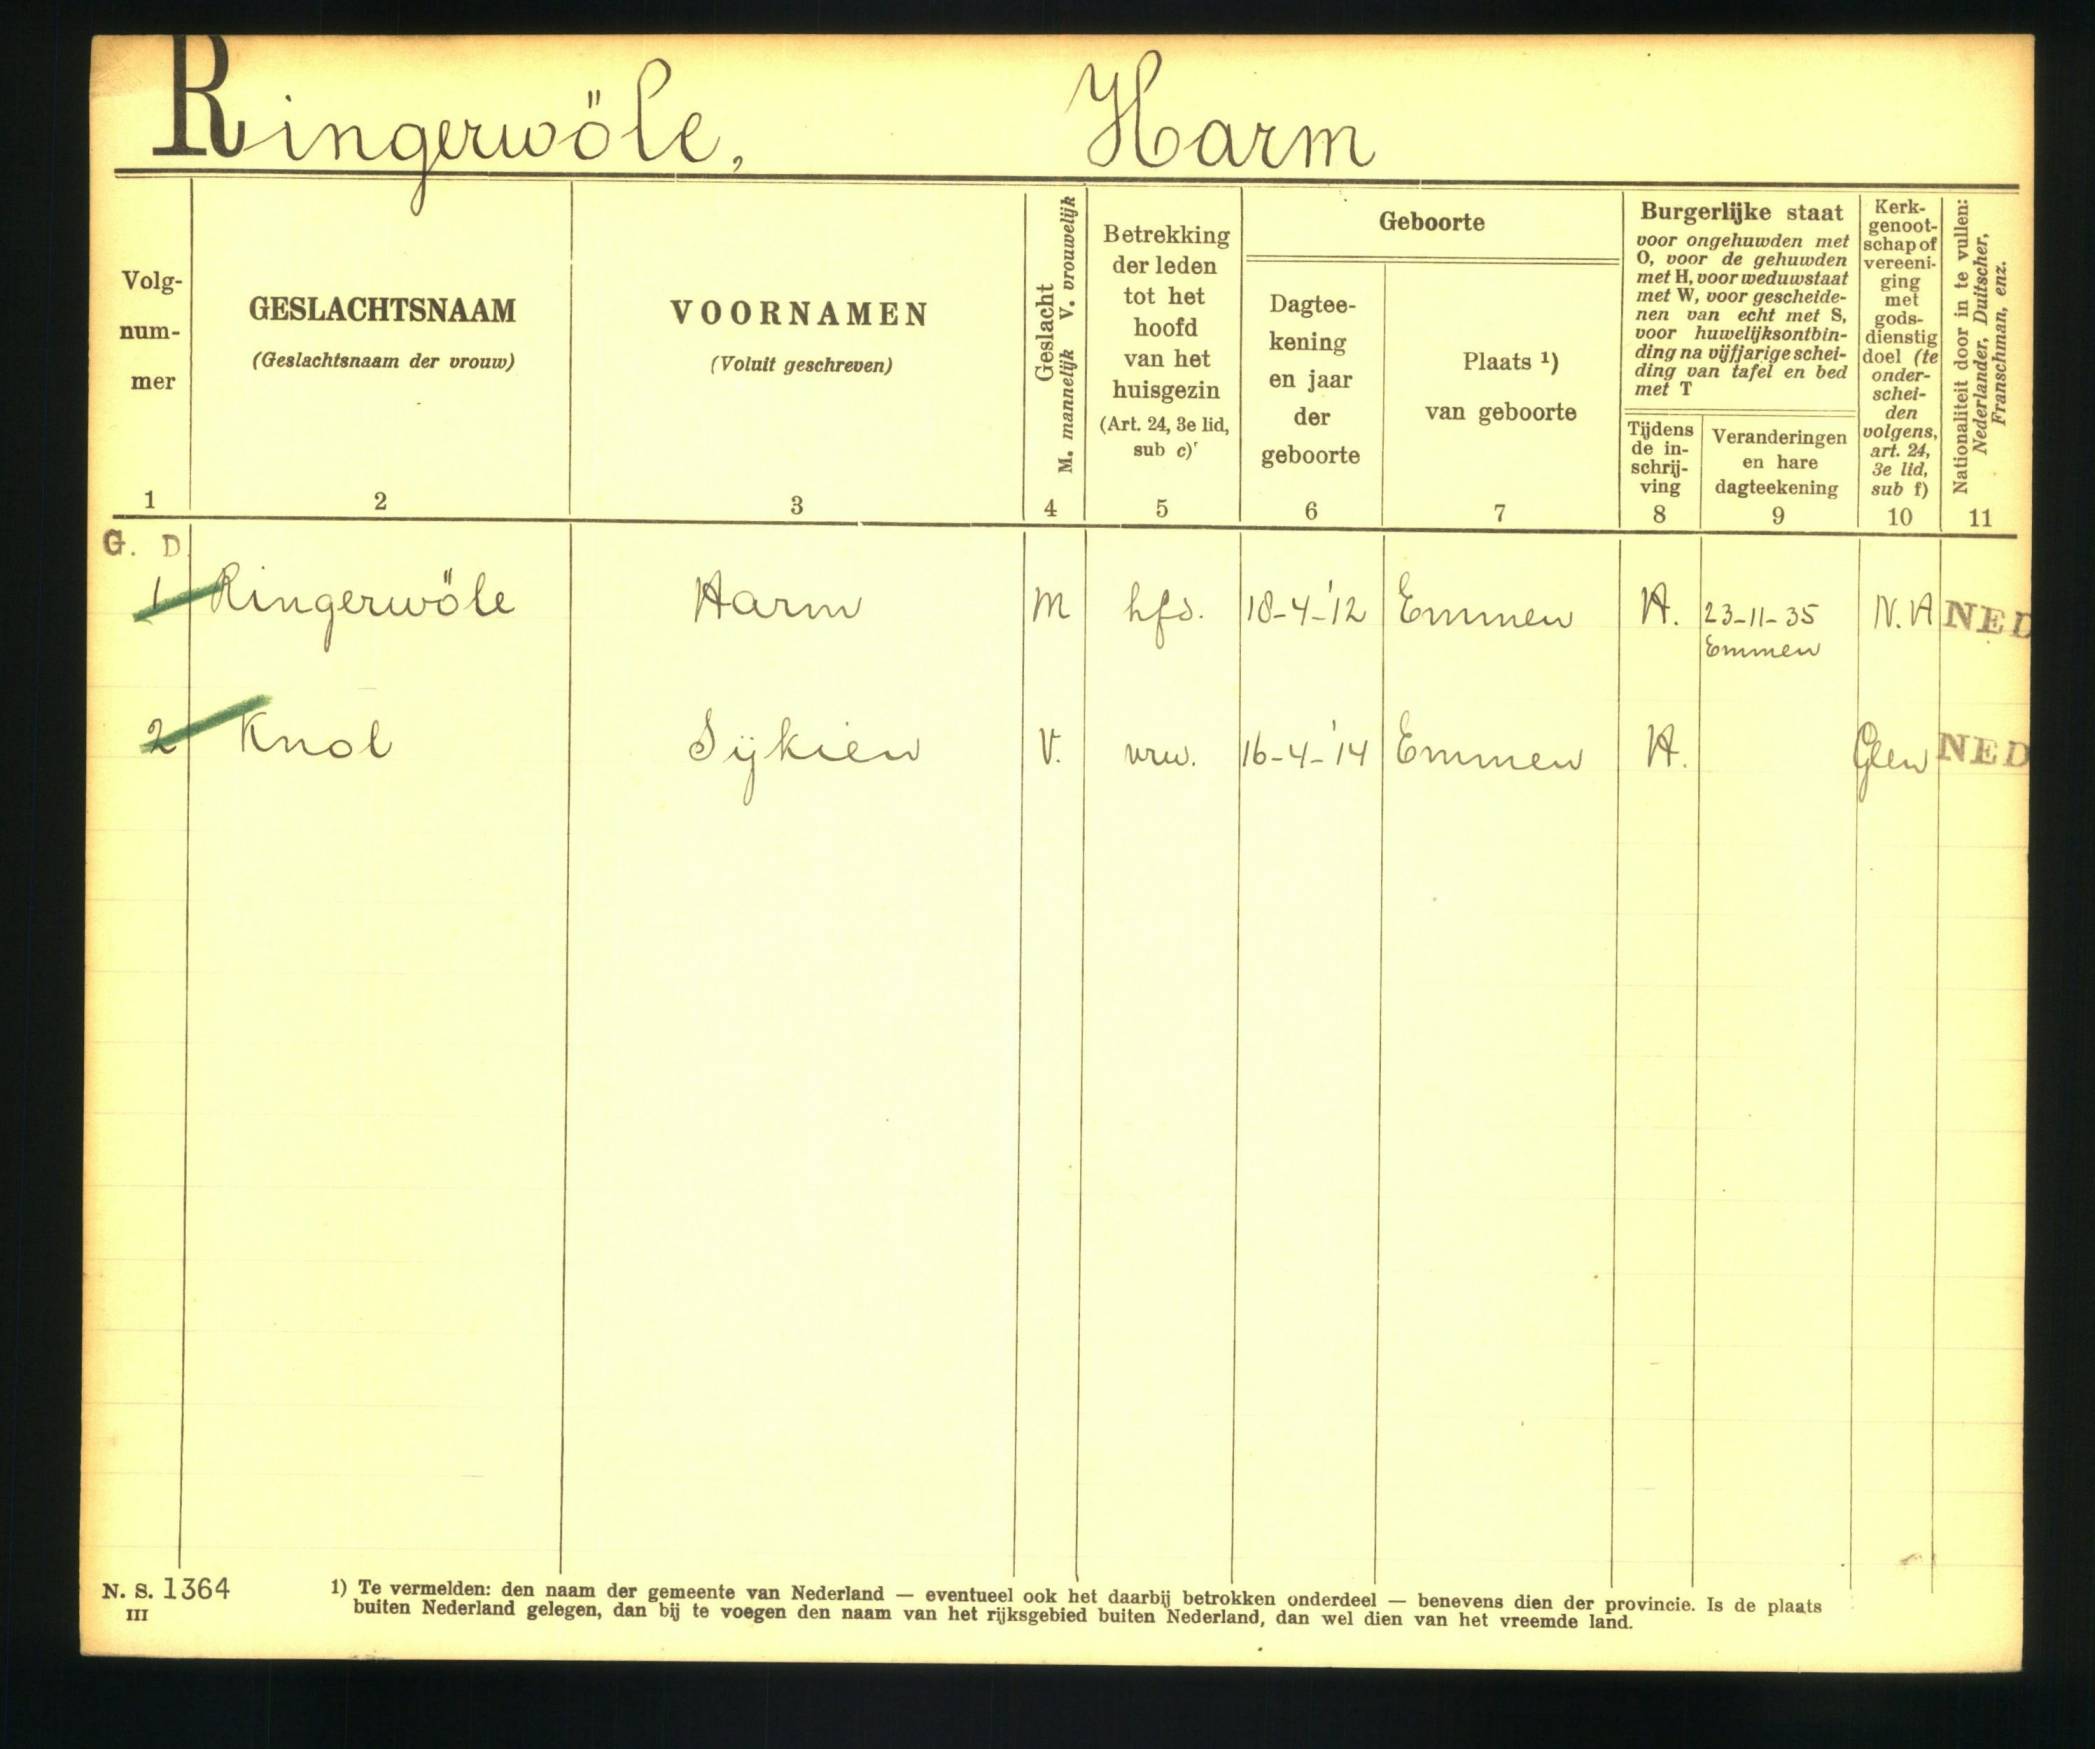 Ringerwöle, Harm
Volg-
num-
mer
1
GESLACHTSNAAM
(Geslachtsnaam der vrouw)
2
VOORNAMEN
(Voluit geschreven)
3
Geslacht
M. mannelijk V. vrouwelijk
4
Betrekking
der leden
tot het
hoofd
van het
huisgezin
(Art. 24, 3e lid,
sub c)
5
Geboorte
Dagtee-
kening
en jaar
der
geboorte
6
Plaats ¹)
van geboorte
7
Burgerlijke staat
voor ongehuwden met
O, voor de gehuwden
met H, voor weduwstaat
met W, voor gescheide-
nen van echt met S,
voor huwelijksontbin-
ding na vijfjarige schei-
ding van tafel en bed
met T
Tijdens
de in-
schrij-
ving
8
Veranderingen
en hare
dagteekening
9
Kerk-
genoot-
schap of
vereeni-
ging
met
gods-
dienstig
doel (te
onder-
schei-
den
volgens,
art. 24,
3e lid,
sub f)
10
Nationaliteit door in te vullen:
Nederlander, Duitscher,
Franschman, enz.
11
G. D.
1 Ringerwöle Harm M hfd. 18-4-'12 Emmen H. 23-11-35 N.H NED
Emmen
2 Knol Sijkien V. vrw. 16-4-'14 Emmen H. Geen NED
N. S. 1364
III
1) Te vermelden: den naam der gemeente van Nederland — eventueel ook het daarbij betrokken onderdeel — benevens dien der provincie. Is de plaats
buiten Nederland gelegen, dan bij te voegen den naam van het rijksgebied buiten Nederland, dan wel dien van het vreemde land.